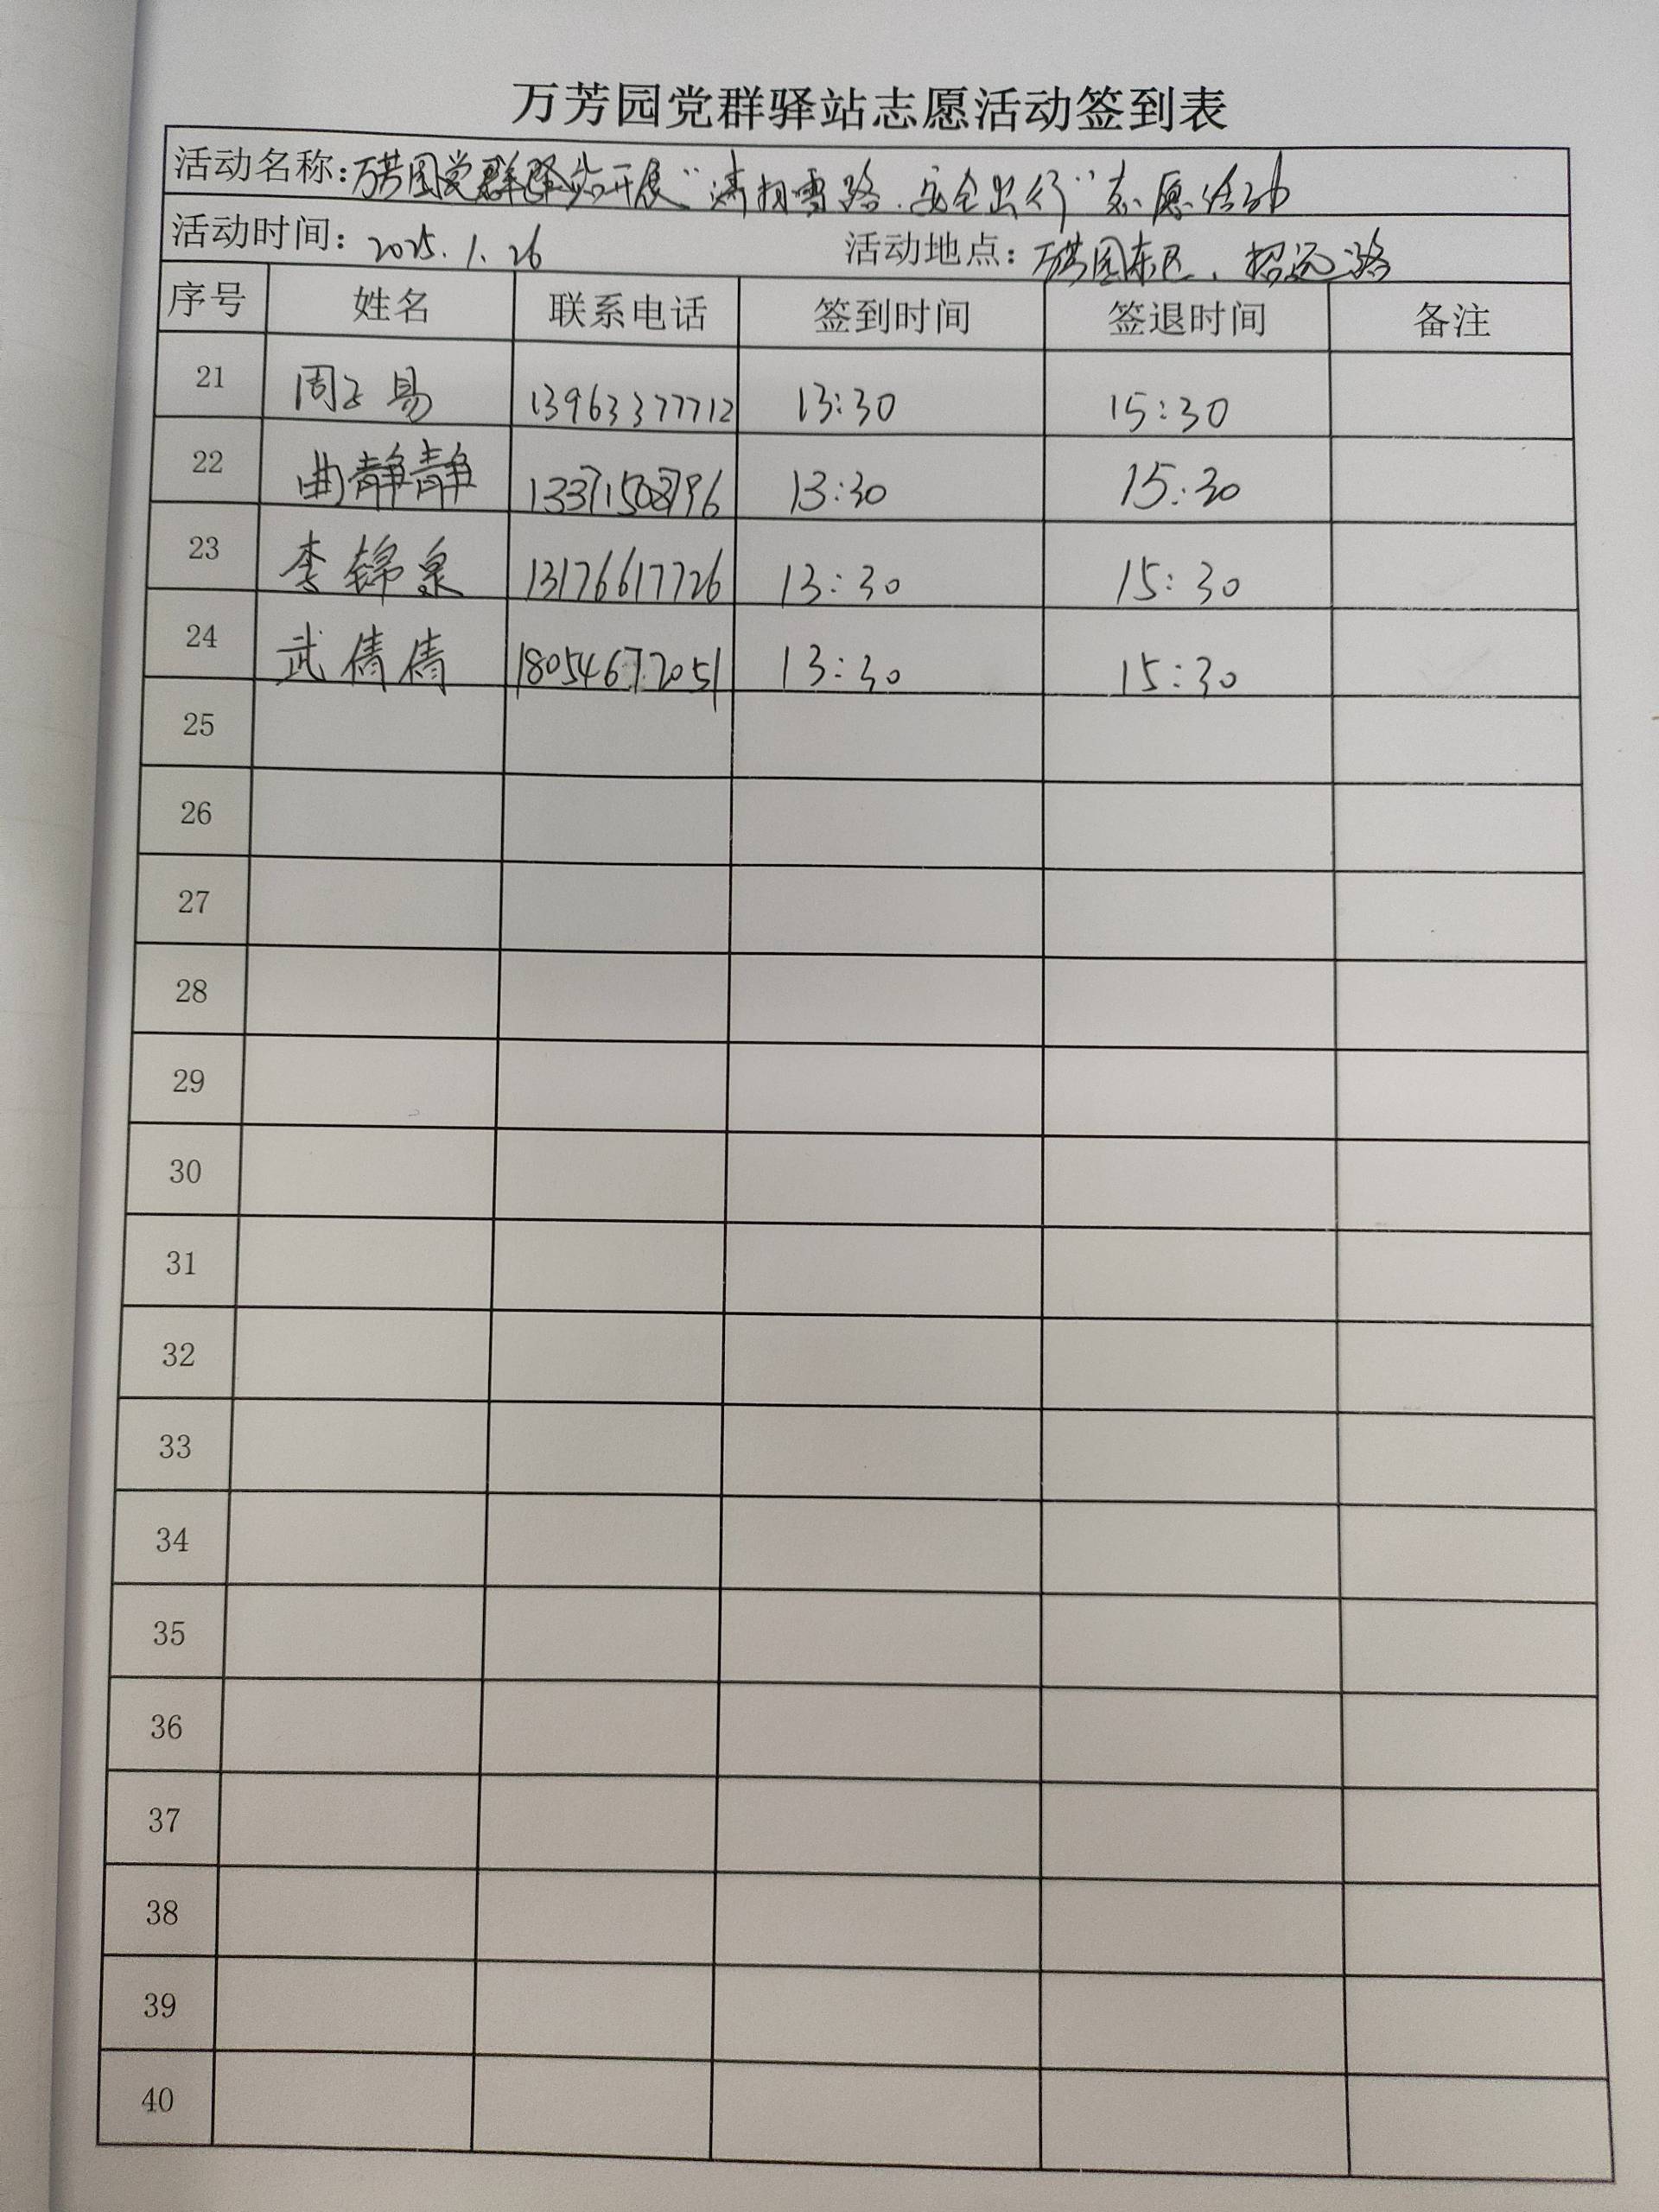 万芳园党群驿站志愿活动签到表
活动名称：万芳园党群驿站开展“清扫雪路、安全出行”志愿活动
活动时间：2025.1.26 活动地点：万芳园东区、招远路
序号 姓名 联系电话 签到时间 签退时间 备注
21 周子易 13963377712 13:30 15:30
22 曲静静 13371508796 13:30 15:30
23 李锦泉 13176617726 13:30 15:30
24 武倩倩 18054672051 13:30 15:30
25
26
27
28
29
30
31
32
33
34
35
36
37
38
39
40